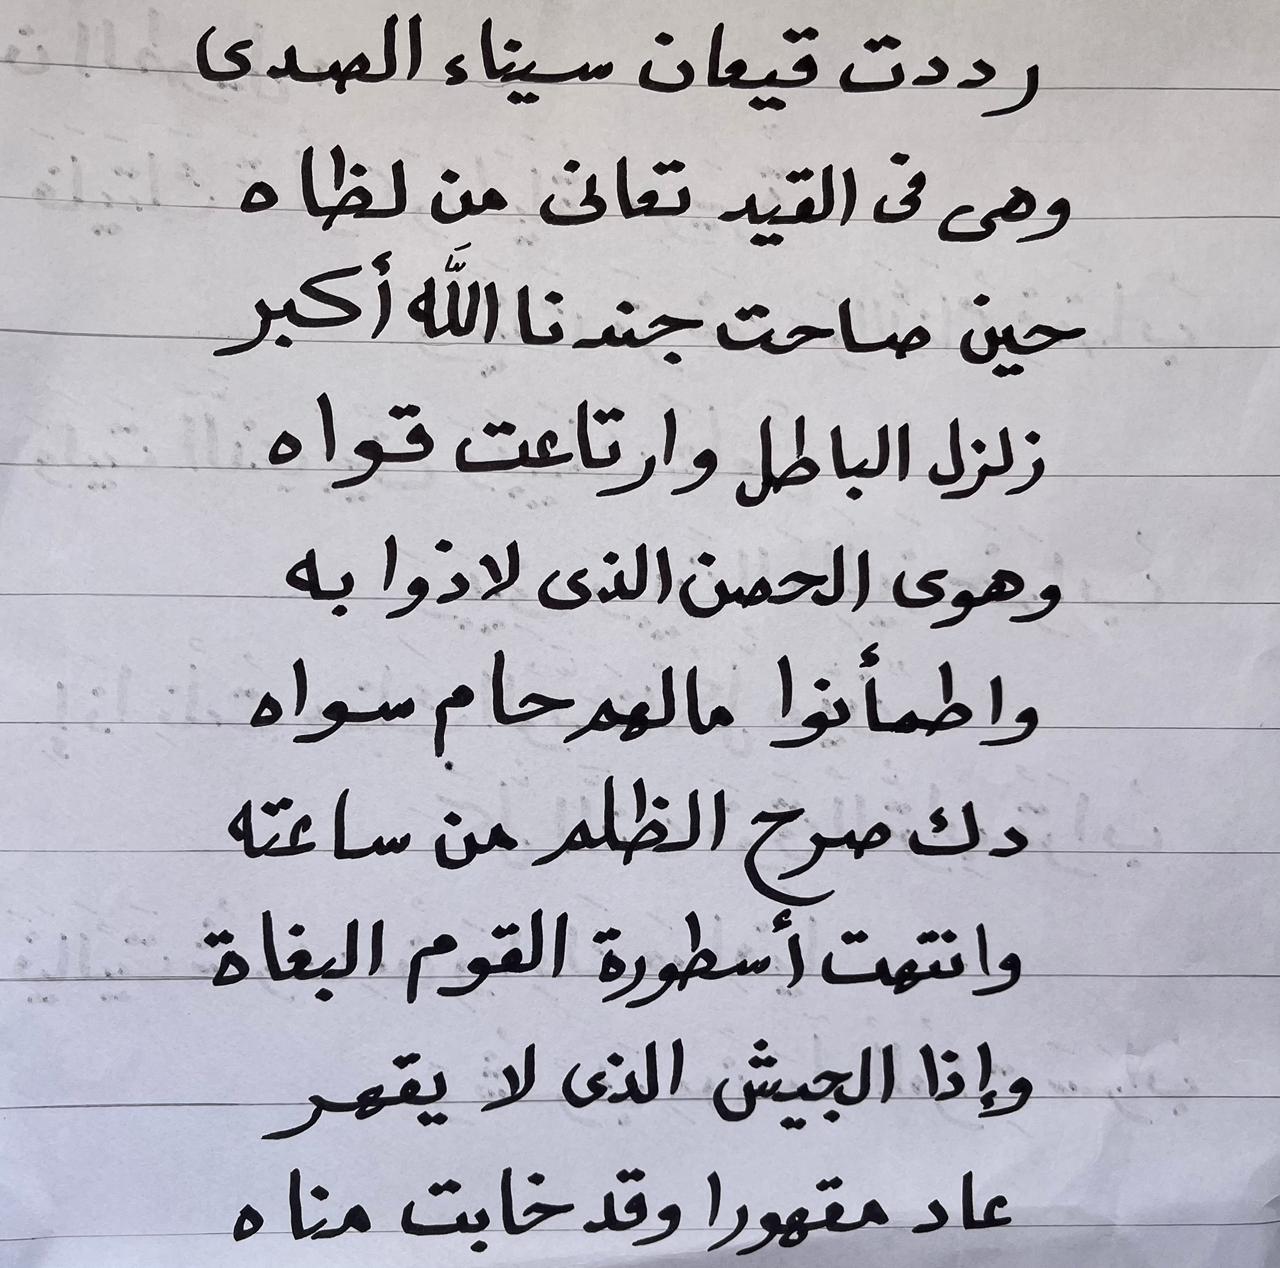 رددت قيعان سيناء الصدى
وهى فى القيد تعانى من لظاه
حين صاحت جندنا اللَّه أكبر
زلزل الباطل وارتاعت قواه
وهوى الحصن الذى لاذوا به
واطمأنوا مالهم حام سواه
دك صرح الظلم من ساعته
وانتهت أسطورة القوم البغاة
وإذا الجيش الذى لا يقهر
عاد مقهورا وقد خابت مناه